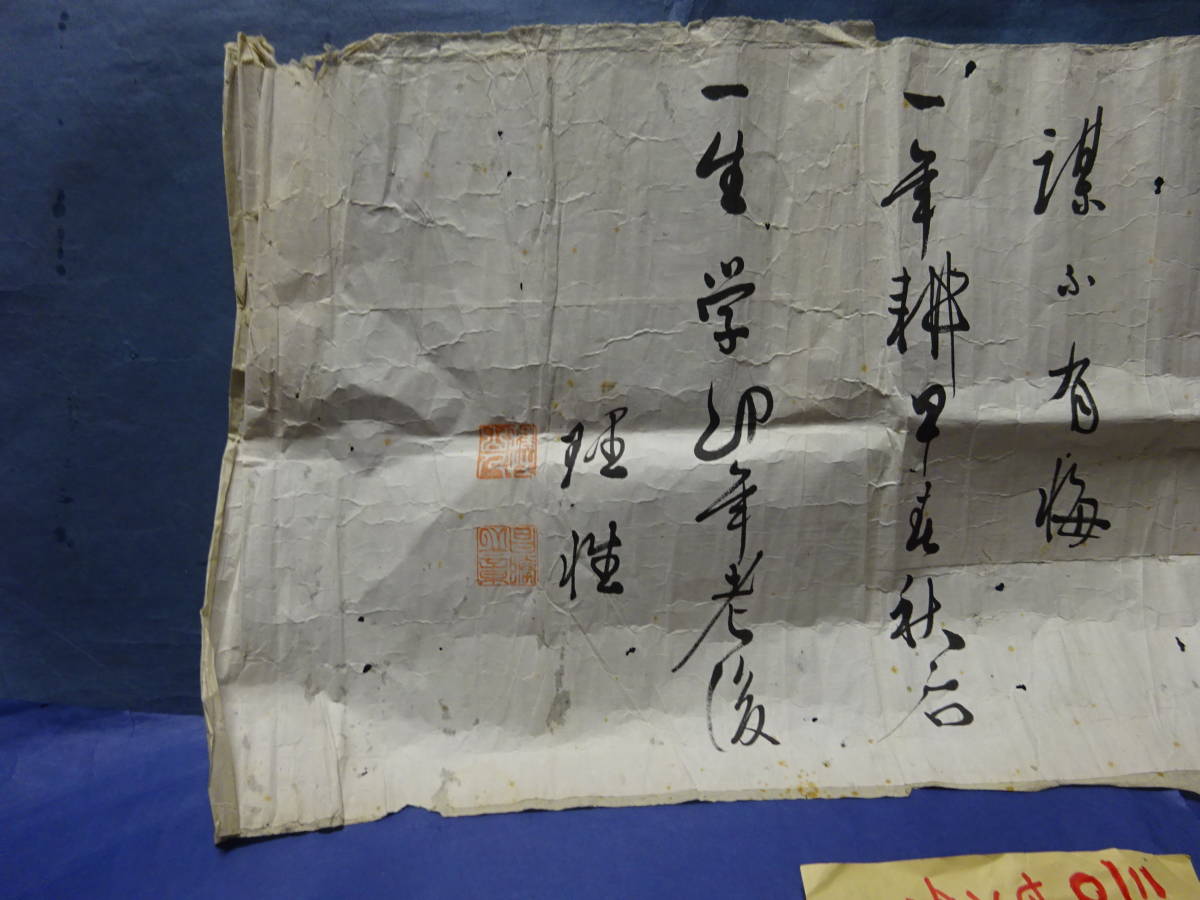 謀不有悔
一年耕早春秋后
一生学幼年老後
理性